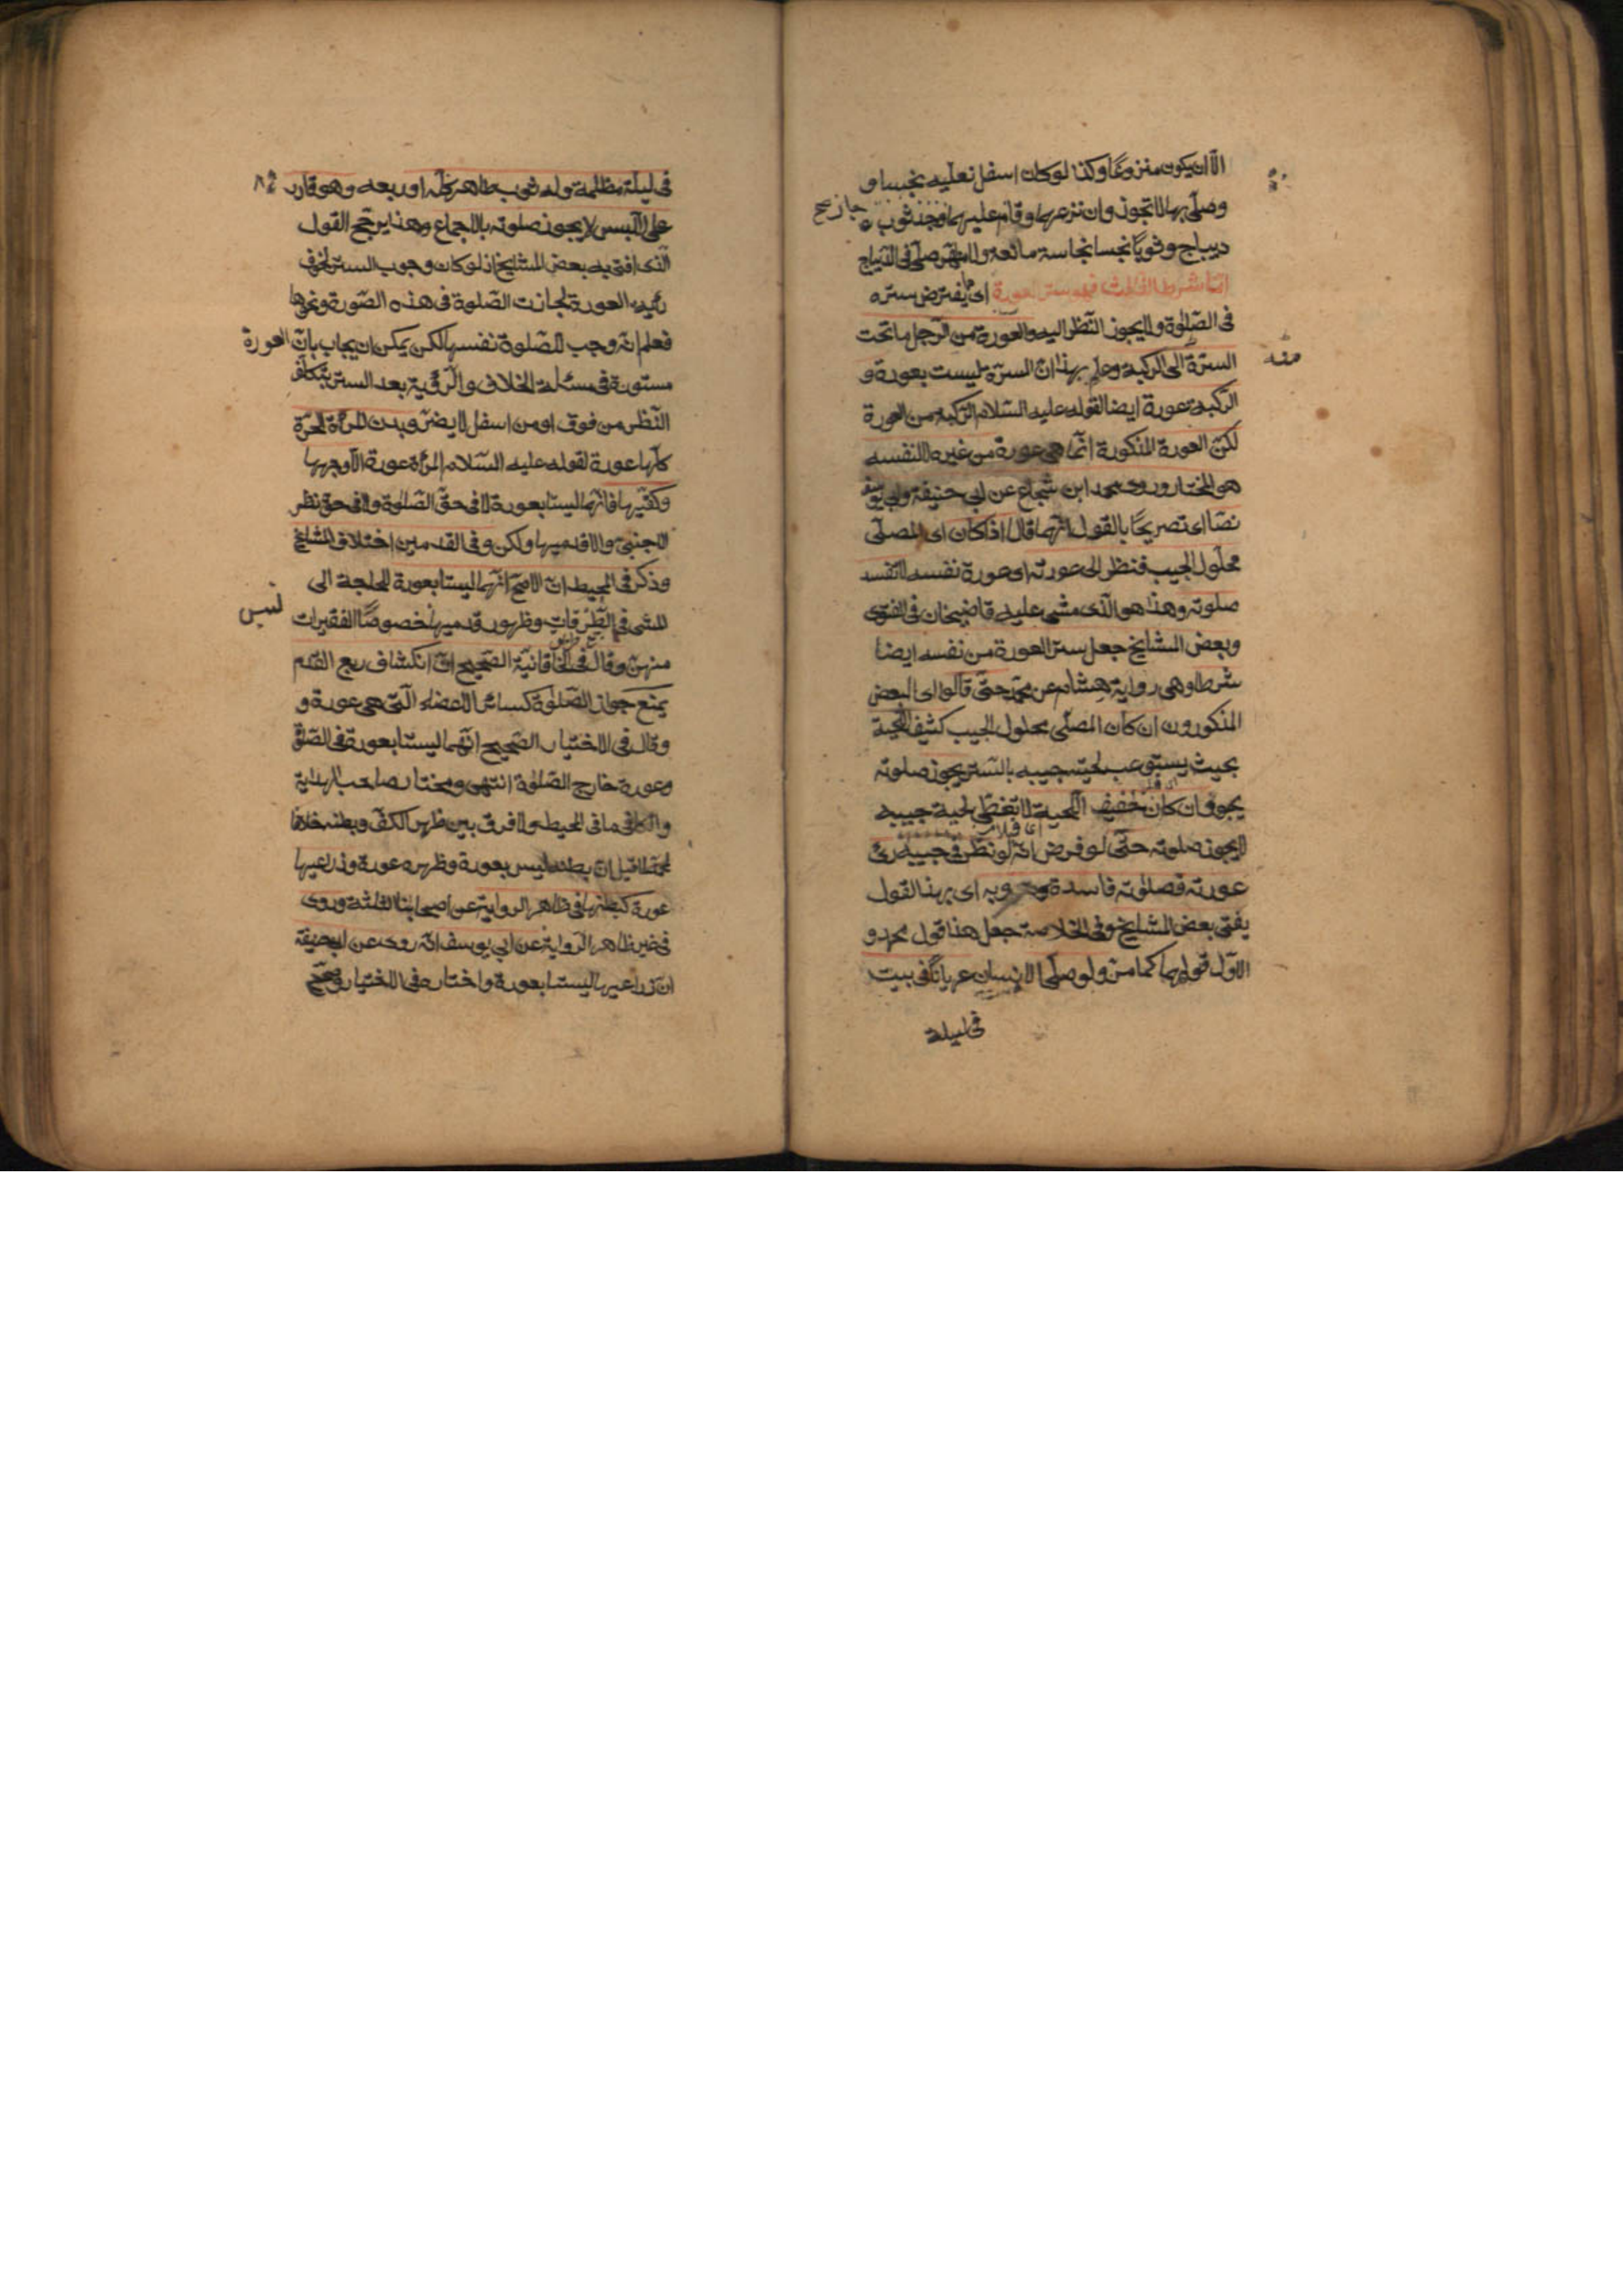 الا ان يكون منزوعا وكذا لو كان اسفل نعليه نجسا و
وصلى بها لا تجوز وان نزعهما وقام عليهما وجد ثوب
جاز صح
ديباج وثوبا نجسا نجاسة مانعة صلى فى الديباج
اما الشرط الثالث فهو ستر العورة اى ما يفترض ستره
فى الصلوة ولا يجوز النظر اليه والعورة من الرجل ما تحت
السترة الى الركبة وعلم بهذا ان السرة ليست بعورة و
منه
الركبة عورة ايضا لقوله عليه السلام الركبة من العورة
لكن العورة المذكورة انما هى عورة من غيره لا لنفسه
هو المختار وروى محمد ابن شجاع عن ابى حنيفة وابى يوسف
نصا اى تصريحا بالقول انهما قال اذا كان اى المصلى
محلول الجيب فنظر الى عورته اى عورة نفسه لا تفسد
صلوته وهذا هو الذى مشى عليه قاضيخان فى الفتوى
وبعض المشايخ جعل ستر العورة من نفسه ايضا
شرطا وهى رواية هشام عن محمد حتى قالوا اى البعض
المذكورون ان كان المصلى محلول الجيب كثيف اللحية
بحيث يستوعب لحيته جيبه بالستر يجوز صلوته
يجوز وان كان خفيف اللحية لا تغطى لحية جيبه
لا يجوز صلوته حتى لو فرض انه لو نظر فى جيبه رئى
عورته فصلوته فاسدة وبه اى بهذا القول
يفتى بعض المشايخ وفى الخلاصة جعل هذا قول محمد و
الاول قولهما كما مر ولو صلى الانسان عريانا فى بيت
فى ليلة
فى ليلة مظلمة وله ثوب طاهر كله او ربعه وهو قادر
٨٤
على اللبس لا يجوز صلوته بالاجماع وهذا يرجح القول
الذى افتى به بعض المشايخ اذ لو كان وجوب الستر لخوف
رئية العورة لجازت الصلوة فى هذه الصورة ونحوها
فعلم انه وجب للصلوة نفسها لكن يمكن ان يجاب بان العورة
مستورة فى مسئلة الخلاف والرؤية بعد الستر بتكلف
النظر من فوق او من اسفل لا يضر وبدن المرأة الحرة
كلها عورة لقوله عليه السلام المرأة عورة الا وجهها
وكفيها فانهما ليستا بعورة لا فى حق الصلوة ولا فى حق نظر
الاجنبى والا قدميها ولكن وفى القدمين اختلاف المشايخ
وذكر فى المحيط ان الاصح انهما ليستا بعورة للحاجة الى
المشى فى الطرقات وظهور قدميها خصوصا الفقيرات
منهن وقال فى الخاقانية الصحيح ان انكشاف ربع القدم
يمنع جواز الصلوة كسائر الاعضاء التى هى عورة و
وقال فى الاختيار الصحيح انهما ليستا بعورة فى الصلوة
وعورة خارج الصلوة انتهى ومختار صاحب الهداية
والكافى ما فى المحيط ولا فرق بين ظهر الكف وبطنه خلافا
لما قيل ان بطنه ليس بعورة وظهره عورة وذراعيها
عورة كبطنها فى ظاهر الرواية عن اصحابنا الثلثة وروى
فى غير ظاهر الرواية عن ابى يوسف انه روى عن ابى حنيفة
ان ذراعيها ليستا بعورة واختاره فى الاختيار